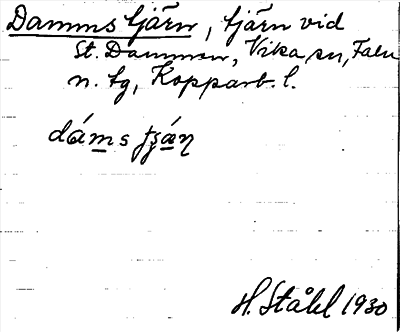 Damms tjärn, tjärn vid
St. Dammen, Vika sn, Falu
n. tg, Kopparb. l.
dáms tʃä́ṇ
H. Ståhl 1930